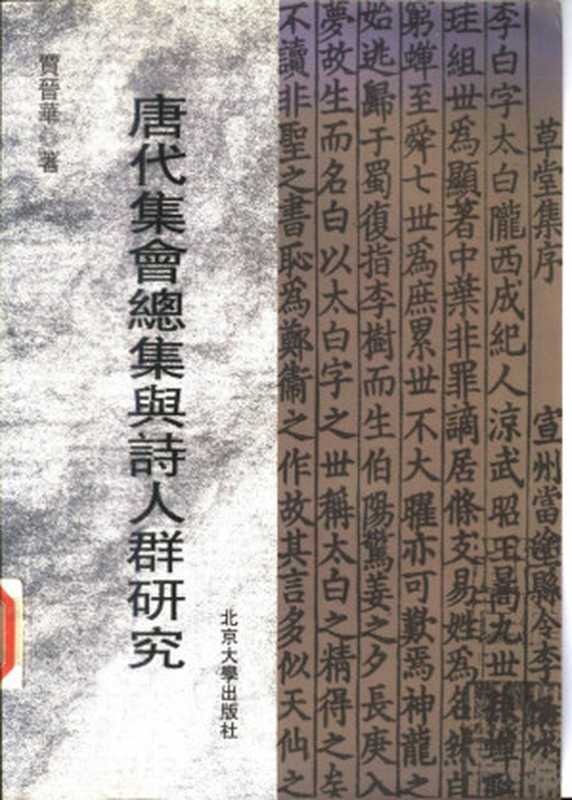 草堂集序 宣州當塗縣令李陽冰
李白字太白隴西成紀人涼武昭王暠九丗孫蟬聯
珪組丗爲顯著中葉非罪謫居條支易姓爲名然自
窮蟬至舜七丗爲庶累丗不大曜亦可歎焉神龍之
始逃歸于蜀復指李樹而生伯陽驚姜之夕長庚入
夢故生而名白以太白字之丗稱太白之精得之矣
不讀非聖之書恥爲鄭衞之作故其言多似天仙之
唐代集會總集與詩人群研究
賈晉華 著
北京大學出版社